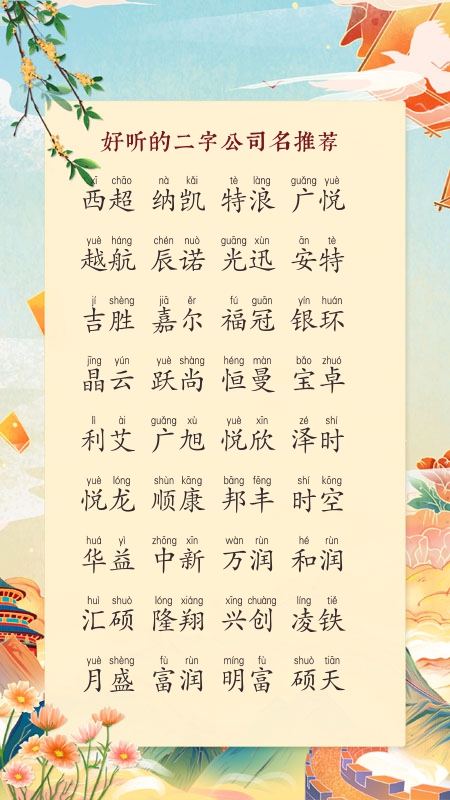 好听的二字公司名推荐
xī chāo nà kǎi tè làng guǎng yuè
西超 纳凯 特浪 广悦
yuè háng chén nuò guāng xùn ān tè
越航 辰诺 光迅 安特
jí shèng jiā ěr fú guān yín huán
吉胜 嘉尔 福冠 银环
jīng yún yuè shàng héng màn bǎo zhuó
晶云 跃尚 恒曼 宝卓
lì ài guǎng xù yuè xīn zé shí
利艾 广旭 悦欣 泽时
yuè lóng shùn kāng bāng fēng shí kōng
悦龙 顺康 邦丰 时空
huá yì zhōng xīn wàn rùn hé rùn
华益 中新 万润 和润
huì shuò lóng xiáng xīng chuàng líng tiě
汇硕 隆翔 兴创 凌铁
yuè shèng fù rùn míng fù shuò tiān
月盛 富润 明富 硕天